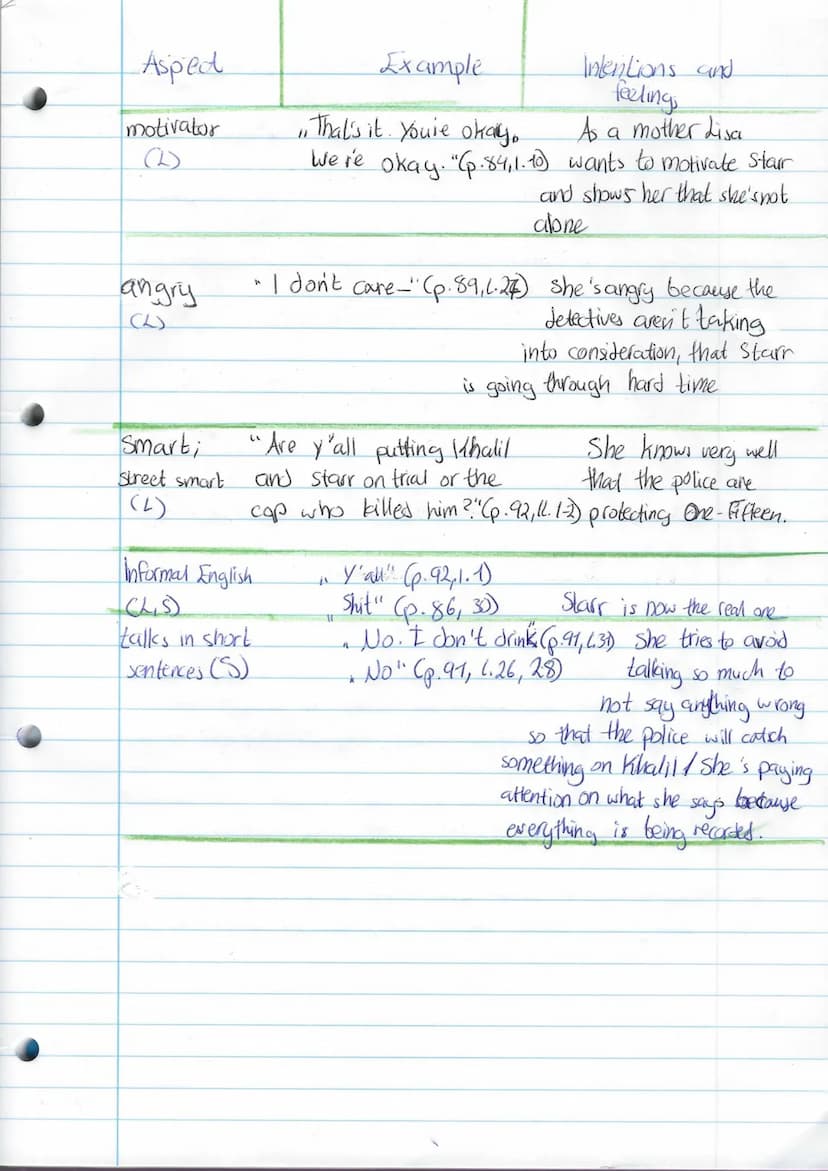 Aspect Example Intentions and
feelings
motivator „That's it. You're okay. As a mother Lisa
(L) We're okay." (p.84, l.10) wants to motivate Starr
and shows her that she's not
alone
angry "I don't care–" (p.89, l.27) She's angry because the
(L) detectives aren't taking
into consideration, that Starr
is going through hard time
Smart; "Are y'all putting Khalil She knows very well
street smart and starr on trial or the that the police are
(L) cop who killed him?" (p.92, ll.1-2) protecting One-Fifteen.
Informal English „Y'all" (p.92, l.1)
(L,S) „Shit" (p.86, 30) Starr is now the real one
talks in short „No. I don't drink" (p.91, l.31) She tries to avoid
sentences (S) „No" (p.91, l.26, 28) talking so much to
not say anything wrong
so that the police will catch
something on Khalil / She's paying
attention on what she says because
everything is being recorded.